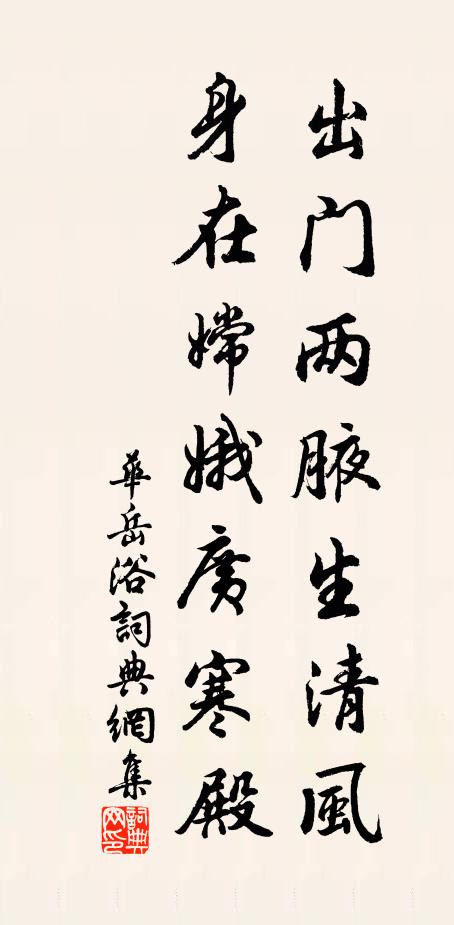 出门两腋生清風
身在嫦娥廣寒殿
華岳浴詞典網集
詞典網印